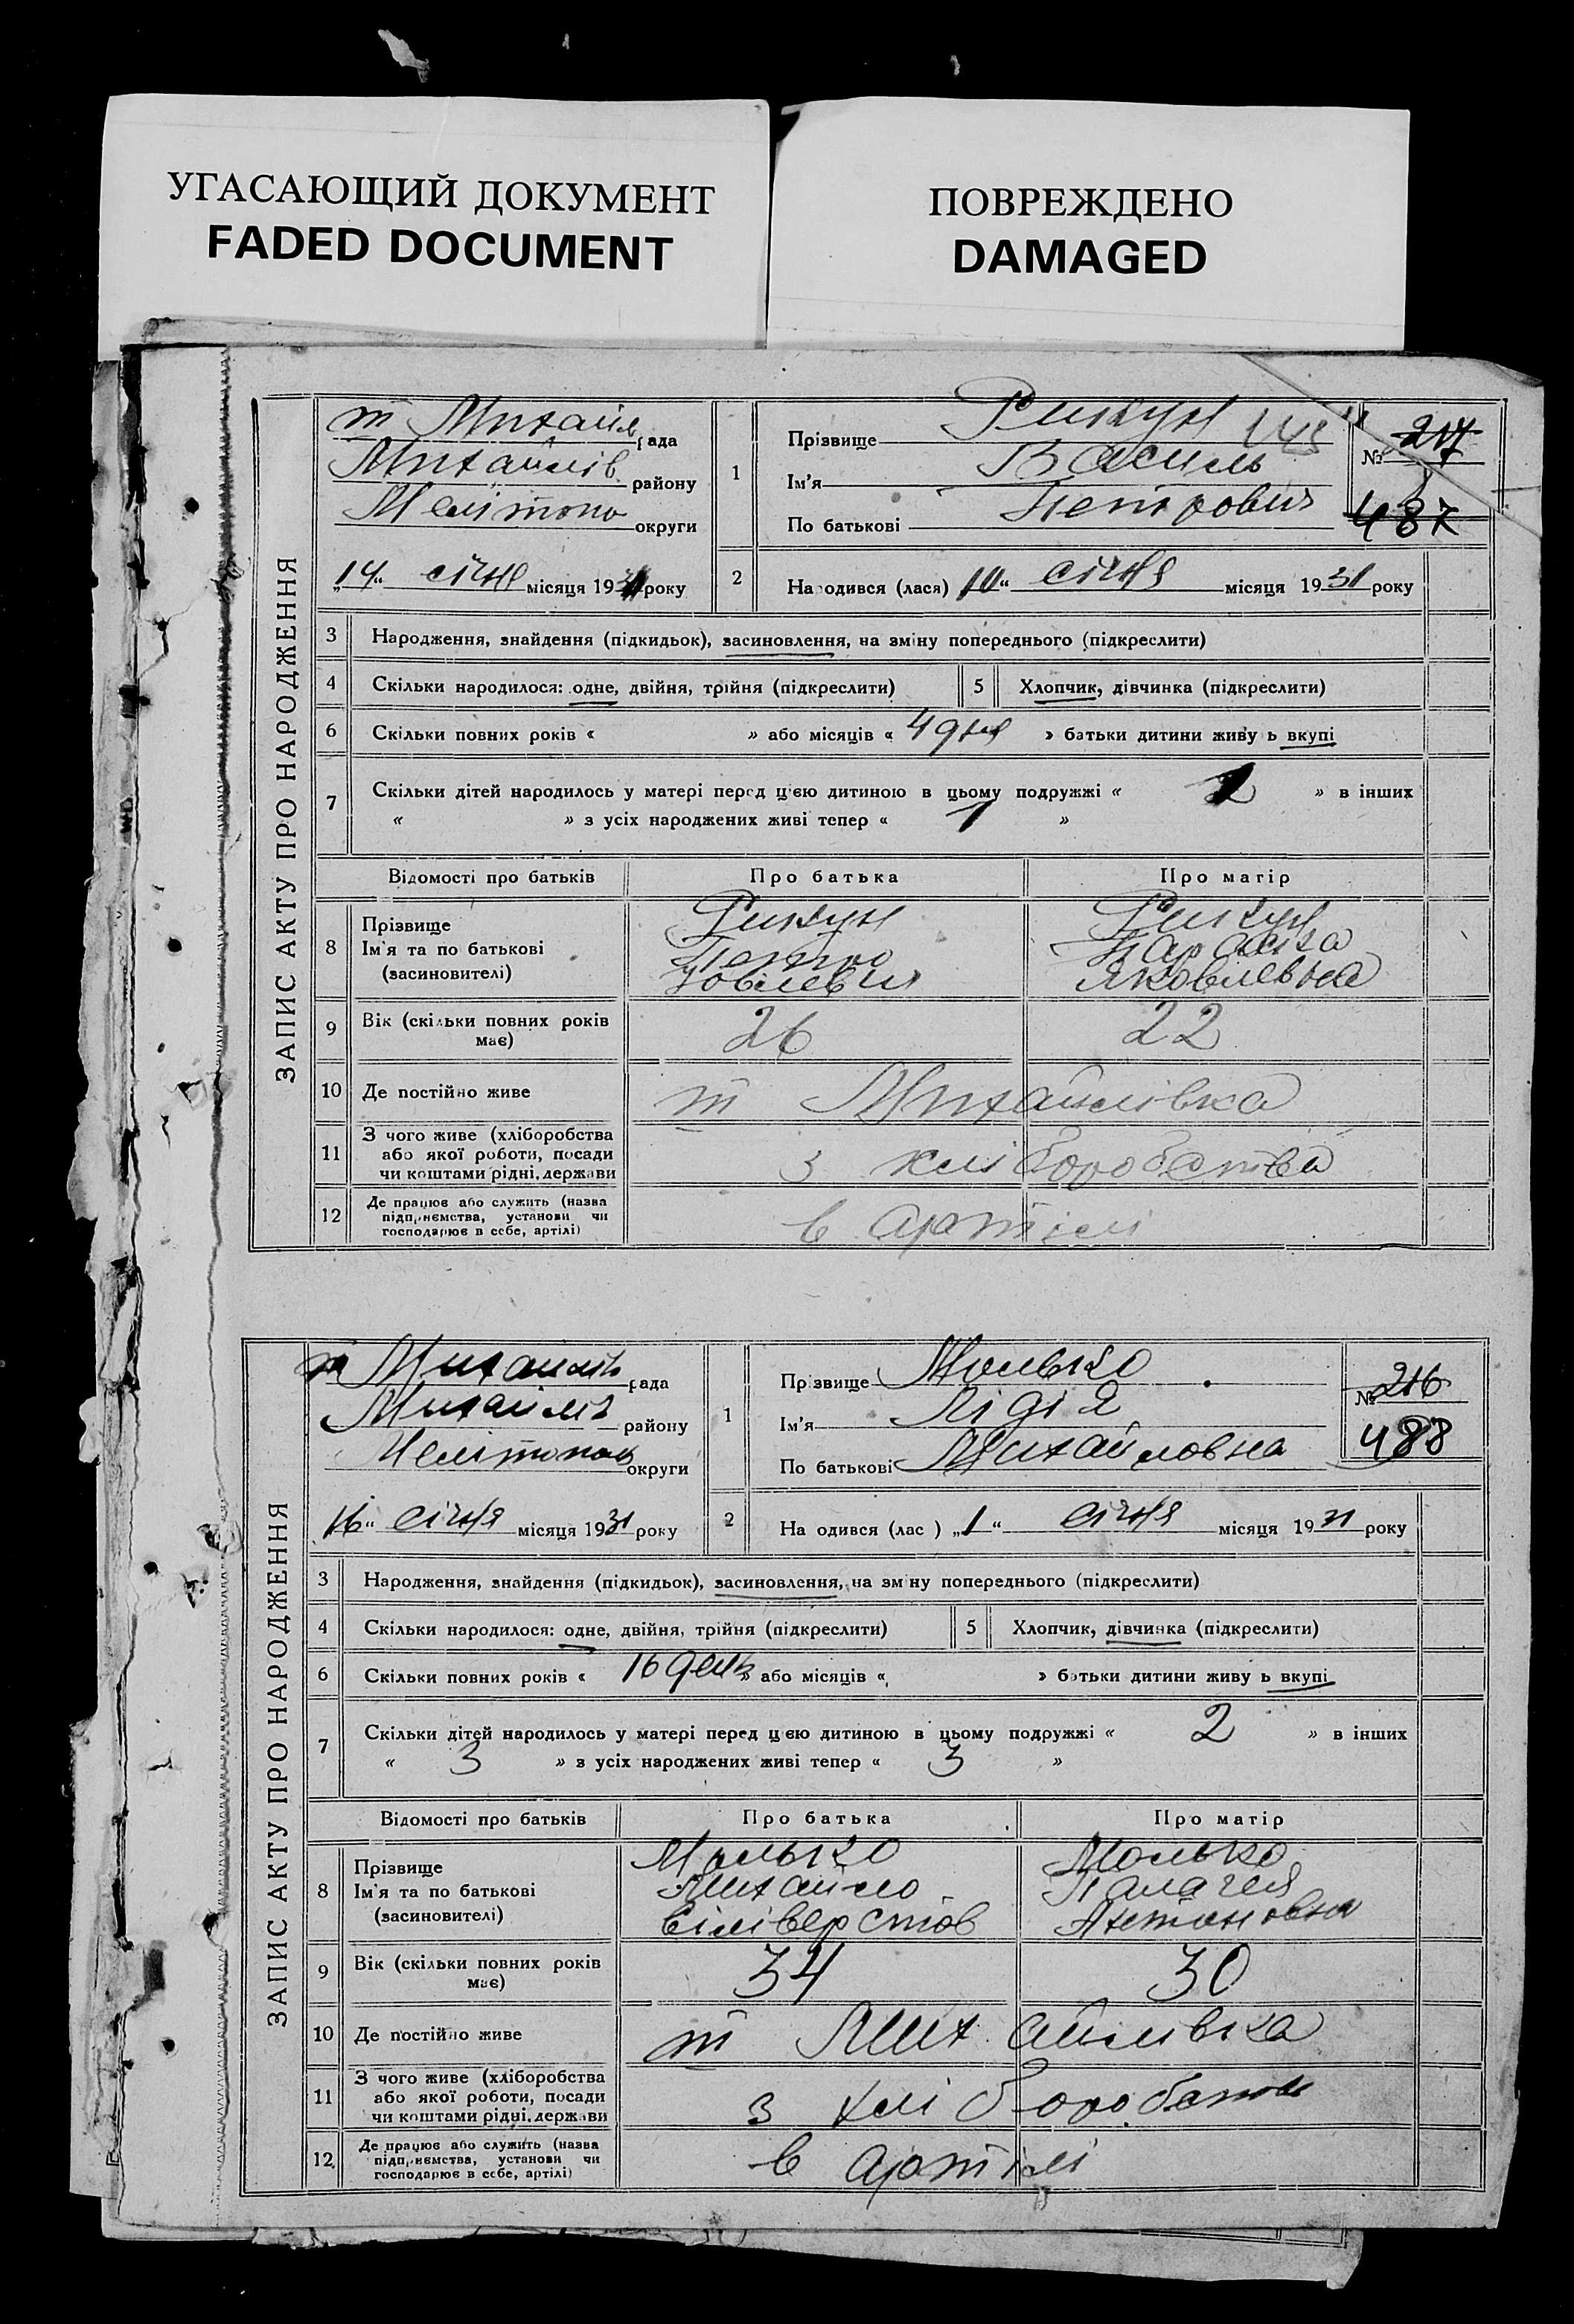 УГАСАЮЩИЙ ДОКУМЕНТ
FADED DOCUMENT
ПОВРЕЖДЕНО
DAMAGED
ЗАПИС АКТУ ПРО НАРОДЖЕННЯ
т Михайл рада
Михайлів району
Меліتопо округи
„14“ січня місяця 1931 року
1 Прізвище
Ім'я Василь
По батькові Петрович
№ 217
487
2 Народився (лася) 10“ січня місяця 1931 року
3 Народження, знайдення (підкидьок), засиновлення, на зміну попереднього (підкреслити)
4 Скільки народилося: одне, двійня, трійня (підкреслити) 5 Хлопчик, дівчинка (підкреслити)
6 Скільки повних років « » або місяців « 4 дня » батьки дитини живуть вкупі
7 Скільки дітей народилось у матері перед цією дитиною в цьому подружжі « 2 » в інших
« » з усіх народжених живі тепер « 1 »
Відомості про батьків Про батька Про матір
8 Прізвище
Ім'я та по батькові
(засиновителі)
Петро
Параска
Яковлевна
9 Вік (скільки повних років має) 26 22
10 Де постійно живе т Михайлівка
11 З чого живе (хліборобства
або якої роботи, посади
чи коштами рідні, держави
з хліборобства
12 Де працює або служить (назва
підприємства, установи чи
господарює в себе, артілі)
в артілі
ЗАПИС АКТУ ПРО НАРОДЖЕННЯ
т Михайлів рада
Михайлів району
Мелітопол округи
16“ січня місяця 1931 року
1 Прізвище Молько
Ім'я Лідія
По батькові Михайловна
№ 216
488
2 Народився (лас ) „1“ січня місяця 1931 року
3 Народження, знайдення (підкидьок), засиновлення, на зміну попереднього (підкреслити)
4 Скільки народилося: одне, двійня, трійня (підкреслити) 5 Хлопчик, дівчинка (підкреслити)
6 Скільки повних років « 16 день » або місяців « » батьки дитини живуть вкупі
7 Скільки дітей народилось у матері перед цією дитиною в цьому подружжі « 2 » в інших
« 3 » з усіх народжених живі тепер « 3 »
Відомості про батьків Про батька Про матір
8 Прізвище
Ім'я та по батькові
(засиновителі)
Молько
Михайло
Сілівёрстов
Молько
Палагея
Антоновна
9 Вік (скільки повних років має) 34 30
10 Де постійно живе т Михайлівка
11 З чого живе (хліборобства
або якої роботи, посади
чи коштами рідні, держави
з хліборобств
12 Де працює або служить (назва
підприємства, установи чи
господарює в себе, артілі)
в артілі